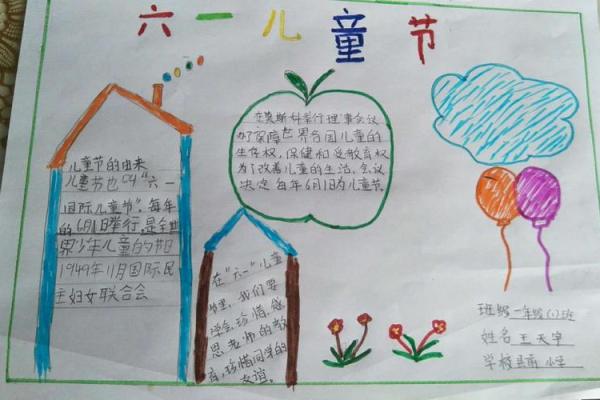 六一儿童节
儿童节的由来
儿童节也叫“六一
国际儿童节”，每年
的6月1日举行，是全世
界少年儿童的节日
1949年11月国际民
主妇女联合会
在莫斯科举行理事会议
为了保障世界各国儿童的
生存权，保健和受教育权
为了改善儿童的生活，会议
决定每年6月1日为儿童节
在“六一”儿童
节里，我们要
学会珍惜，感
恩老师的教
育，珍惜同学的
友谊。
班级一年级(1)班
姓名王天宇
学校县南小学